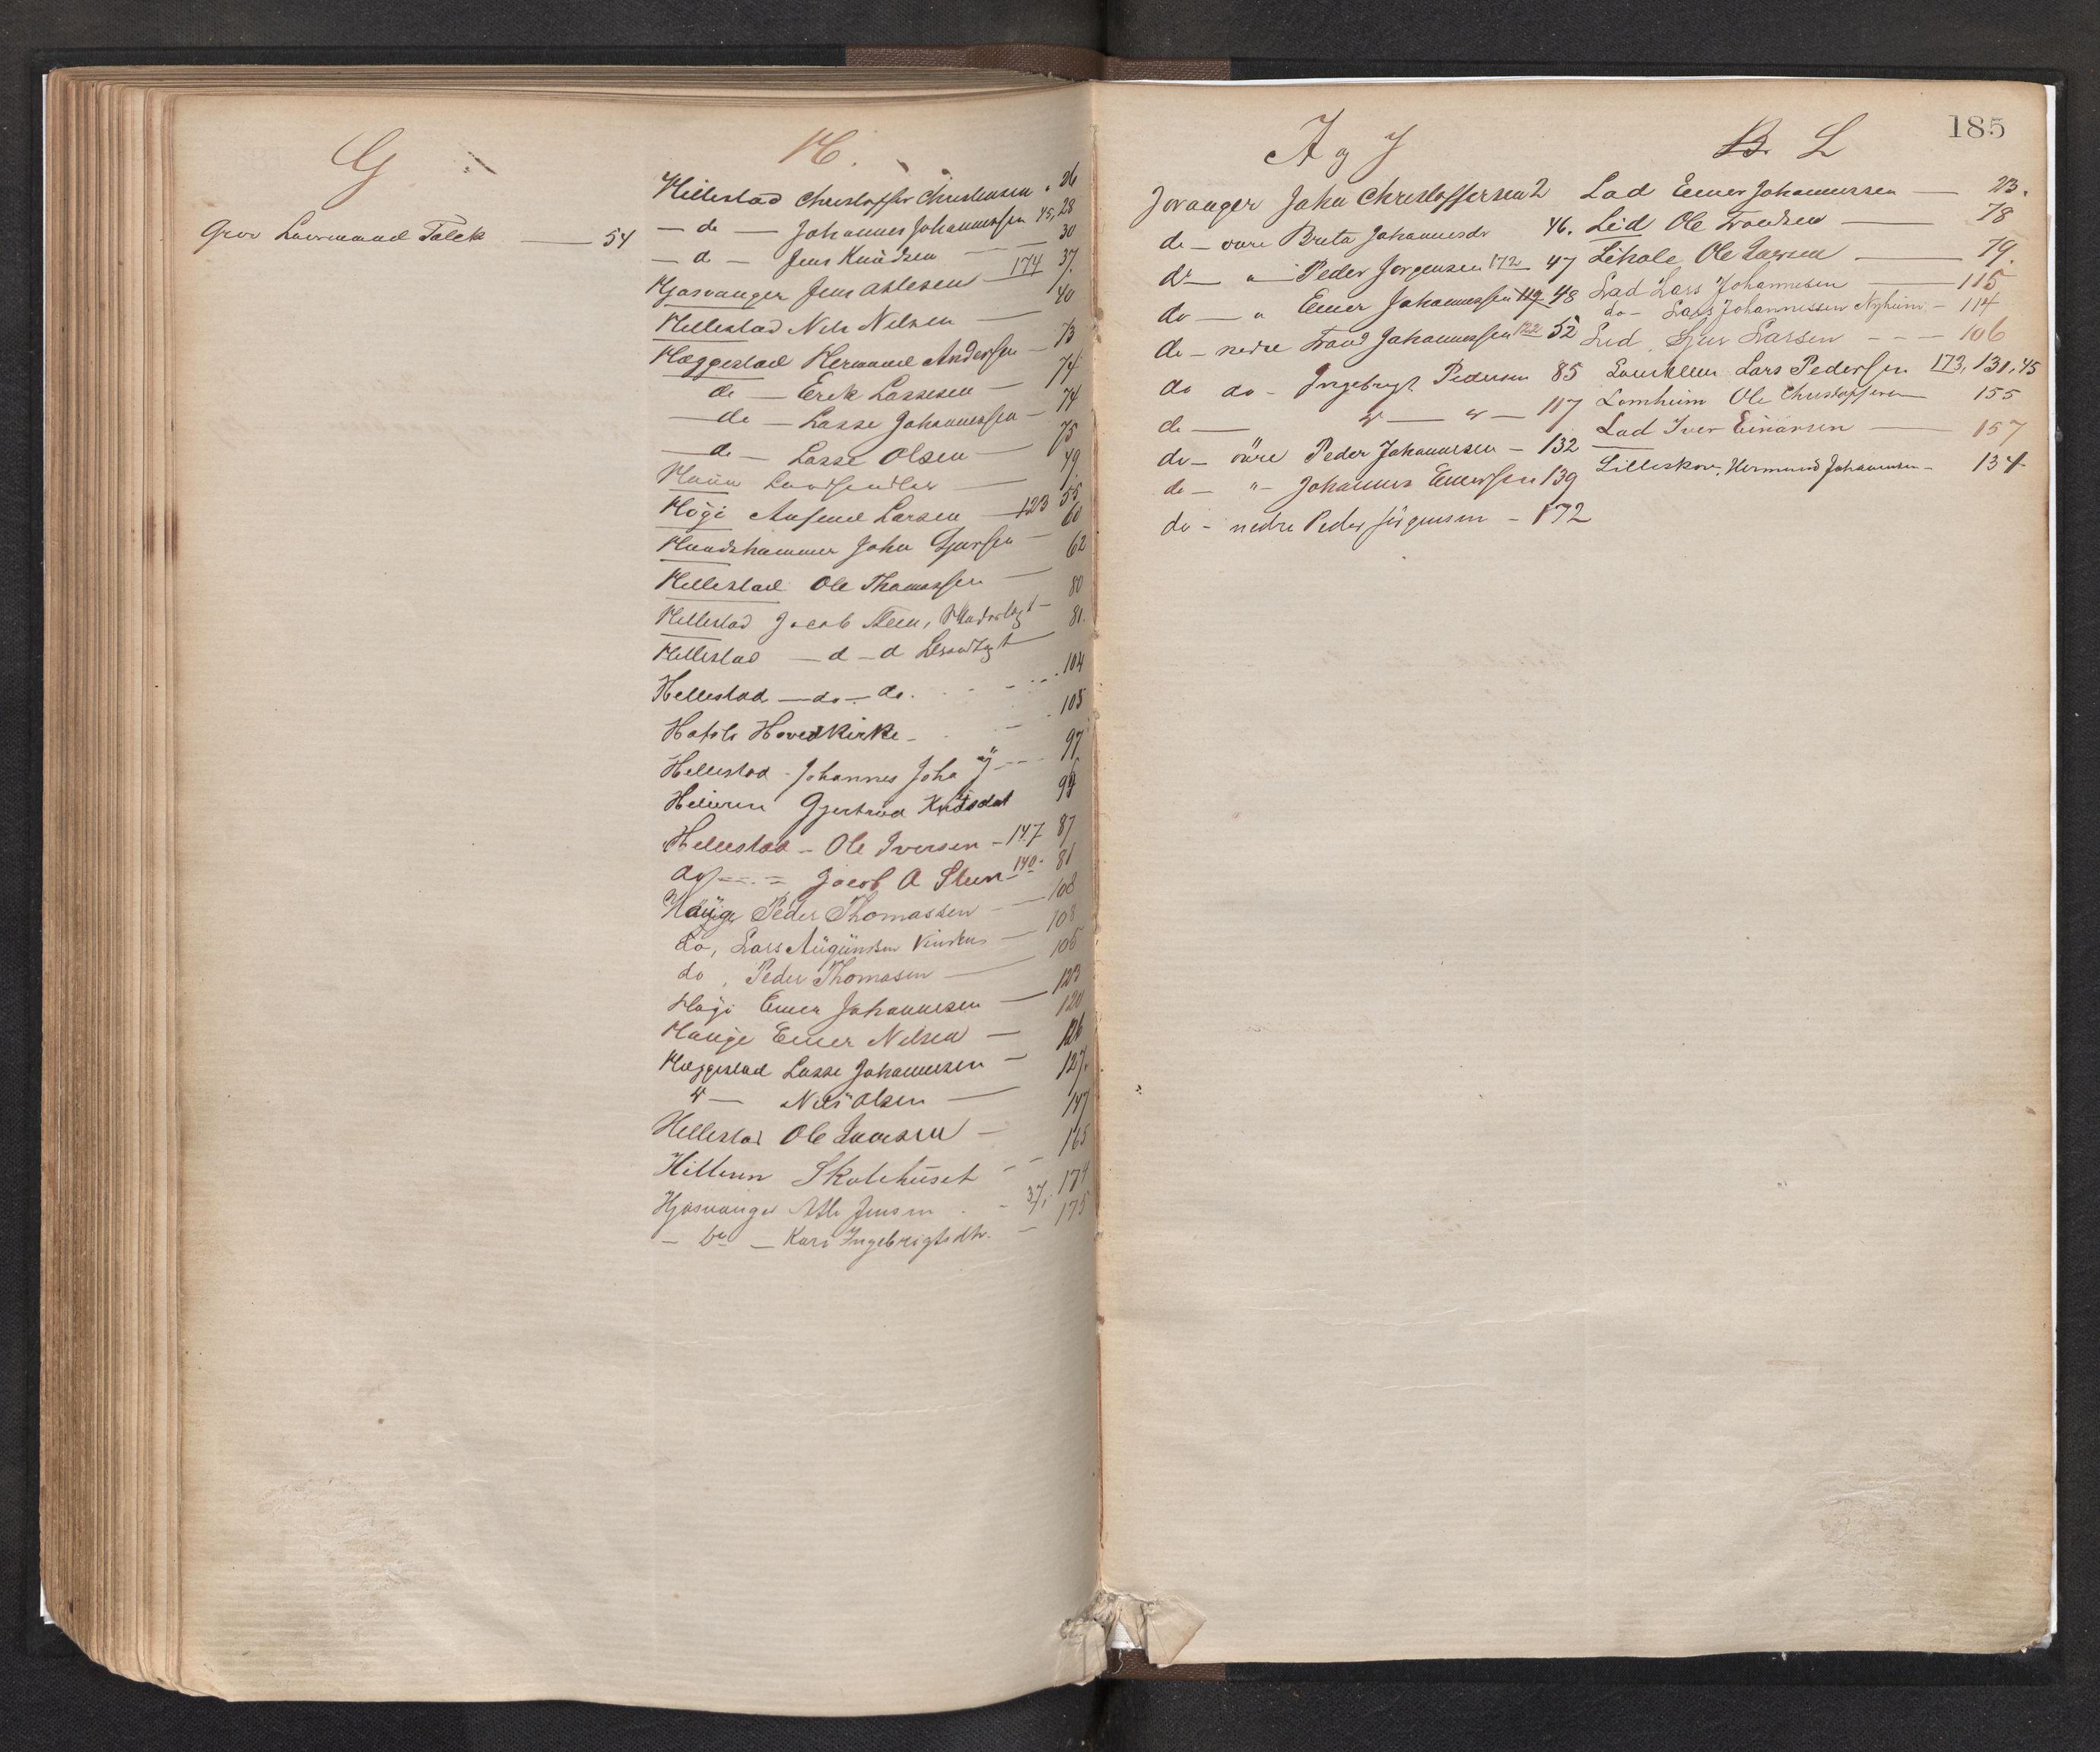 G
Grov Laurmand Falck — 54
H.
Hillestad Christoffer Christensen . 26
— do — Johannes Johannessen 45, 28
— d — Jens Knudsen — 30
Hjosvanger Jens Atlesen — 174 37.
Hillestad Nils Nilsen — 40
Hæggestad Hermund Andersen — 73
do — Erik Lassesen — 74
— do — Lasse Johannessen — 74
— do — Lasse Olsen — 75
49
Högi Larsen — 123 55
60
John Sjursen — 62
Hillestad Ole Thomassen —
Hillestad Jacob Steen, — 80
Hillestad — d — d — 81.
Hellestad — do — do. 104
Hafslo Hovedkirke — 105
Hellestad - Johannes Joha 97
Gjertrud Knutsdat 98
Hellestad — Ole Iversen — 147 87
do Jacob A Steen — 140 - 81
Hauge Peder Thomassen — 108
do, Lars — 108
do, Peder Thomasen — 105
Högi Einer Johannesen — 123
Hauge Einer Nilsen — 120
Hæggestad Lasse Johannesen — 126
" — Nils Olsen — 127.
Hellestad Ole Iversen — 147
Hilleren Skolehuset 165
Hjosvanger Atle Jensen - 37, 174
— do — Kari Ingebrigtsdtr. — 175
185
I og J
Joranger John Christoffersen 2
do — övre Brita Johannesdr 46.
do — " Peder Jørgensen 172 47
do — " Einer Johannessen 119 48
do — nedre Trond Johannessen 122 52
do do — Ingebrigt Pedersen 85
do — " — " — 117
do — övre Peder Johannesen — 132
do — " — Johannes Einersen 139
do — nedre Peder Jörgensen — 172
B. L
Lad Einer Johannessen — 23.
Lid Ole Trondsen — 78
Lihole Ole Larsen — 79.
Lad Lars Johannesen — 115
do — Lars Johannessen Nyheim — 114
Lid, Sjur Larsen — 106
Lars Pedersen 173, 131, 45
Lomheim Ole Christoffersen 155
Lad Iver Einarsen — 157
Lilleskov, Hermund Johannesen — 134